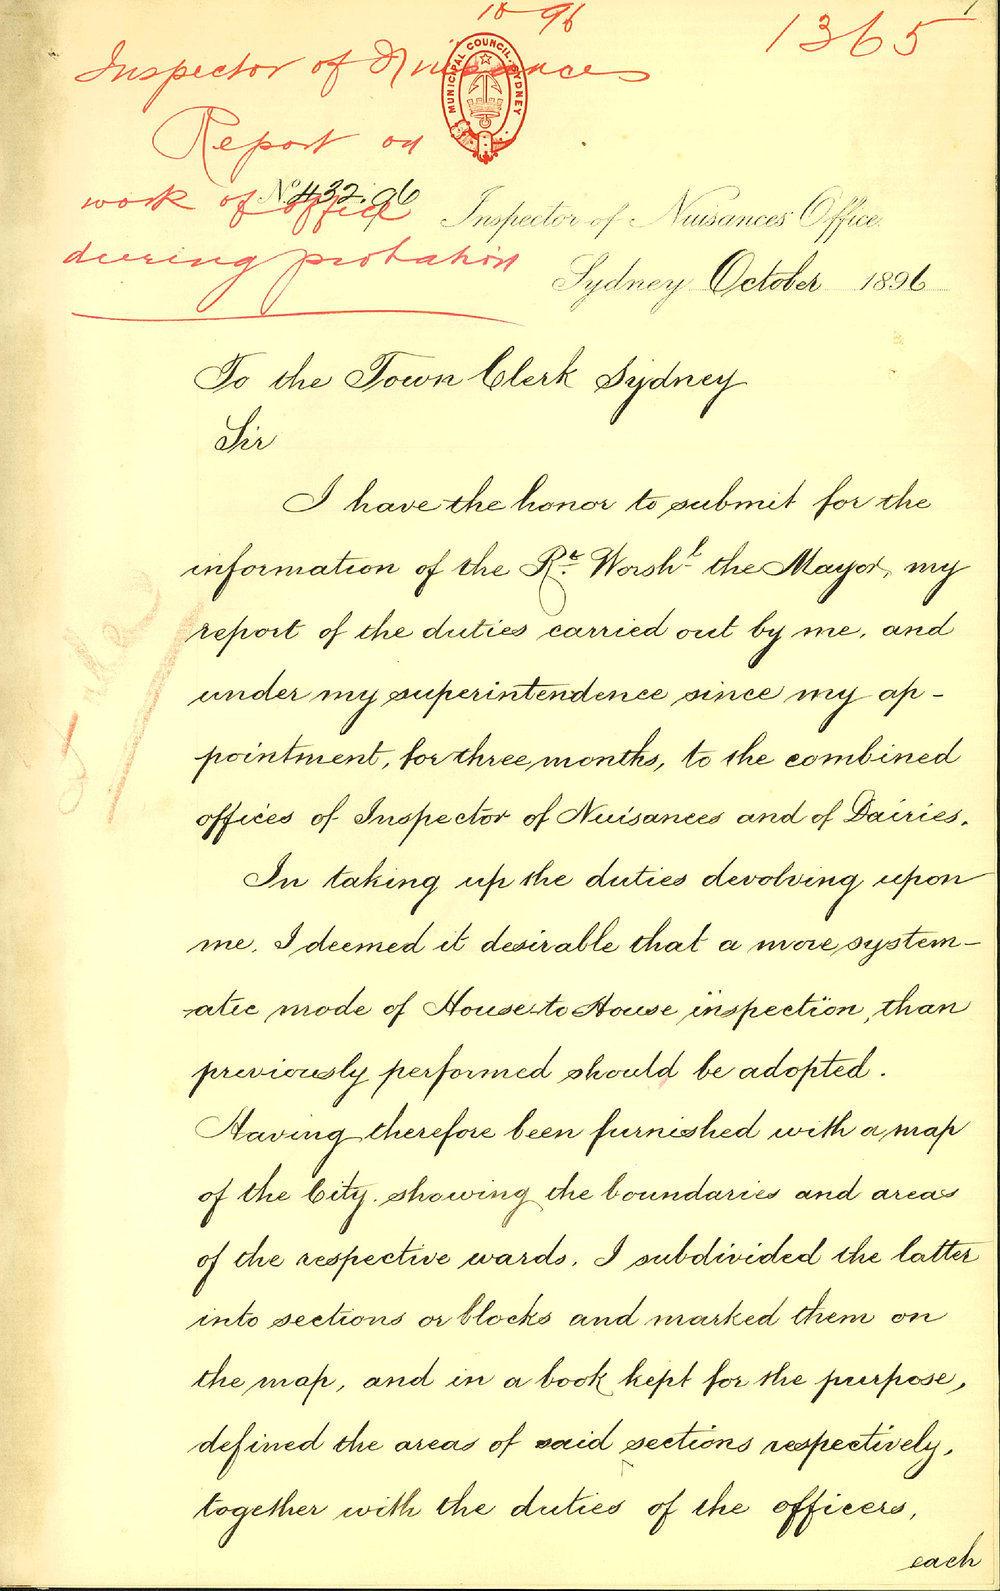 10 96
1365
1
Inspector of Nuisances
MUNICIPAL COUNCIL. SYDNEY
Report on
work of office
No 432.96
during probation
Inspector of Nuisances Office.
Sydney October 1896
To the Town Clerk Sydney
Sir
I have the honor to submit for the
information of the Rt. Worshl the Mayor, my
report of the duties carried out by me, and
under my superintendence since my ap-
pointment, for three months, to the combined
offices of Inspector of Nuisances and of Dairies.
In taking up the duties devolving upon
me. I deemed it desirable that a more system-
atic mode of House-to-House inspection, than
previously performed should be adopted.
Having therefore been furnished with a map
of the City. showing the boundaries and areas
of the respective wards. I subdivided the latter
into sections or blocks and marked them on
the map, and in a book kept for the purpose,
defined the areas of said sections respectively,
together with the duties of the officers,
each